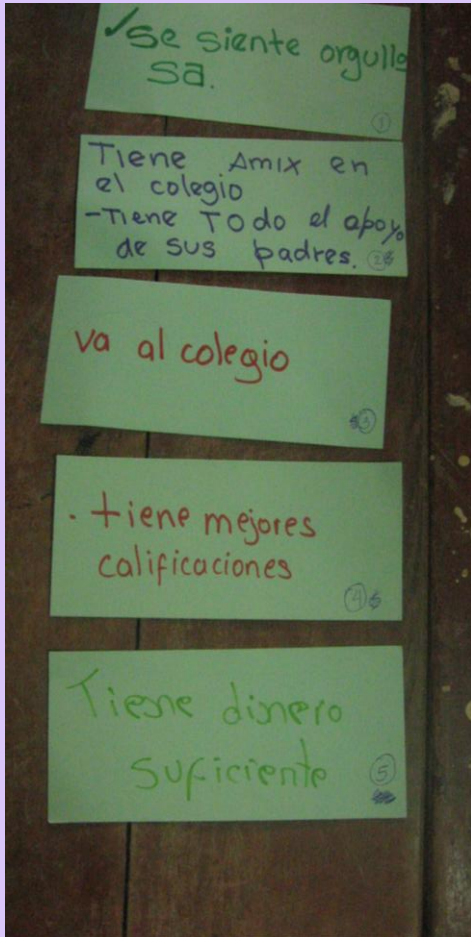 ✓Se siente orgullo
sa.
①
Tiene Amix en
el colegio
-Tiene Todo el apoyo
de sus padres. ②
va al colegio
③
. tiene mejores
calificaciones
④
Tiene dinero
suficiente
⑤